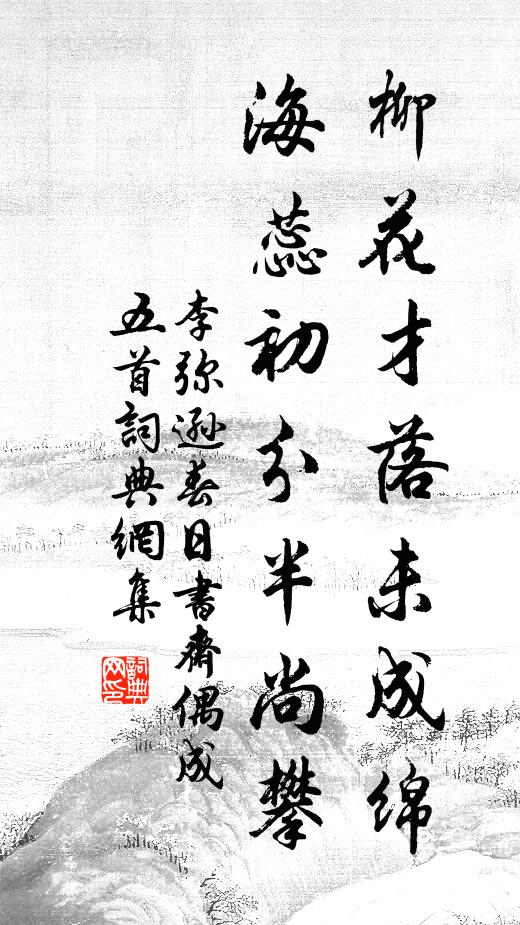 柳花才落未成绵
海蕊初分半尚攀
李弥逊春日书斋偶成
五首词典网集
词典网印